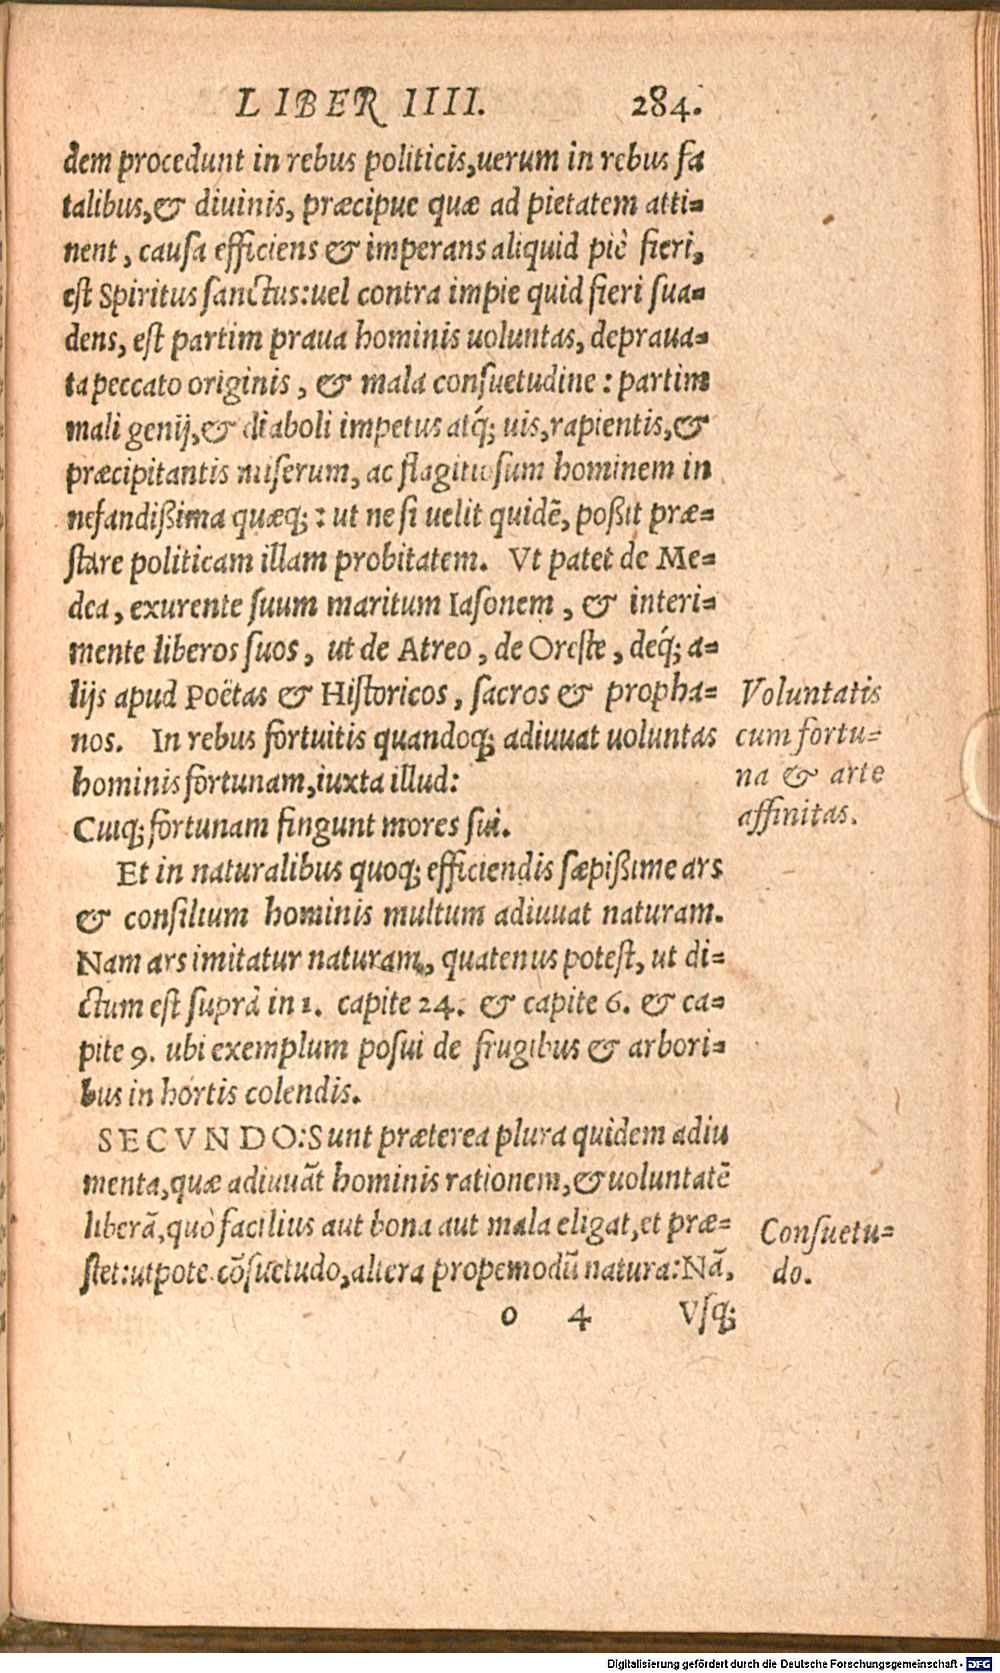 LIBER IIII. 284.
dem procedunt in rebus politicis,uerum in rebus fa
talibus,& diuinis, præcipue quæ ad pietatem atti-
nent, causa efficiens & imperans aliquid piè fieri,
est Spiritus sanctus:uel contra impie quid fieri sua-
dens, est partim praua hominis uoluntas, depraua-
ta peccato originis, & mala consuetudine: partim
mali genij,& diaboli impetus atq́; uis,rapientis,&
præcipitantis miserum, ac flagitiosum hominem in
nefandißima quæq;: ut ne si uelit quidē, poßit præ-
stare politicam illam probitatem. Vt patet de Me-
dea, exurente suum maritum Iasonem, & interi-
mente liberos suos, ut de Atreo, de Oreste, deq́; a-
lijs apud Poëtas & Historicos, sacros & propha-
nos. In rebus fortuitis quandoq; adiuuat uoluntas
hominis fortunam,iuxta illud:
Voluntatis
cum fortu-
na & arte
affinitas.
Cuiq; fortunam fingunt mores sui.
Et in naturalibus quoq; efficiendis sæpißime ars
& consilium hominis multum adiuuat naturam.
Nam ars imitatur naturam, quatenus potest, ut di-
ctum est suprà in 1. capite 24. & capite 6. & ca-
pite 9. ubi exemplum posui de frugibus & arbori-
bus in hortis colendis.
SECVNDO:Sunt præterea plura quidem adiu
menta,quæ adiuuāt hominis rationem,& uoluntatē
liberā,quò facilius aut bona aut mala eligat,et præ-
stet:utpote cōsuetudo,altera propemodū natura:Nā,
Consuetu-
do.
o 4 Vsq;
Digitalisierung gefördert durch die Deutsche Forschungsgemeinschaft - DFG